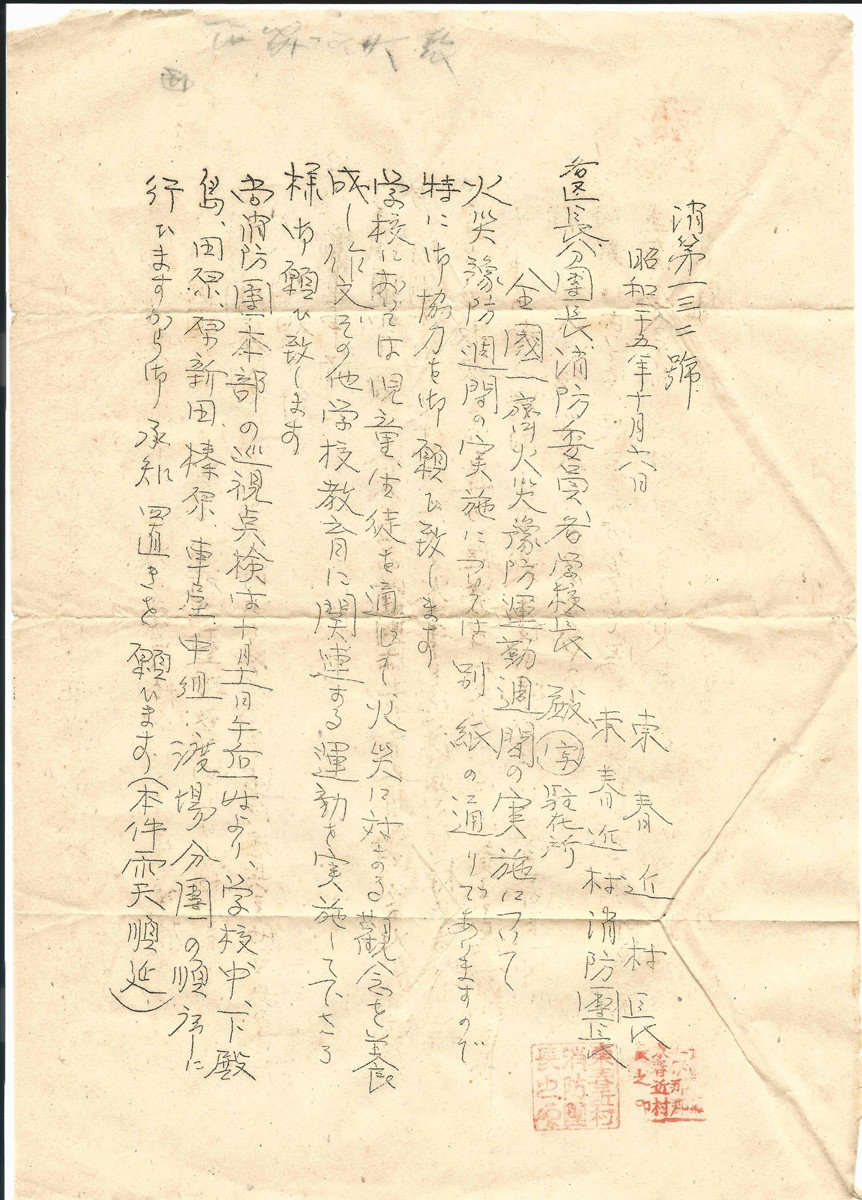 消第一三二號
昭和二十五年十月六日
東春近村長
東春近村消防團長
各区長、分團長消防委員、各学校長 殿 (写)駐在所
全國一齊火災豫防運動週間の実施について
火災豫防週間の実施については別紙の通りでありますので
特に御協力を御願ひ致します
学校におひては児童、生徒を通じ 火災に対する観念を養
成し作文その他学校教育に関連する運動を実施して下さる
様御願ひ致します
尚消防團本部の巡視点検は十月 日午后一時より、学校、中、下殿
島、田原、原新田、榛原、車屋、中組、渡場分團の順序に
行ひますから御承知置きを願います(本件雨天順延)
東春近村
消防團
長之印
東春近村
長之印